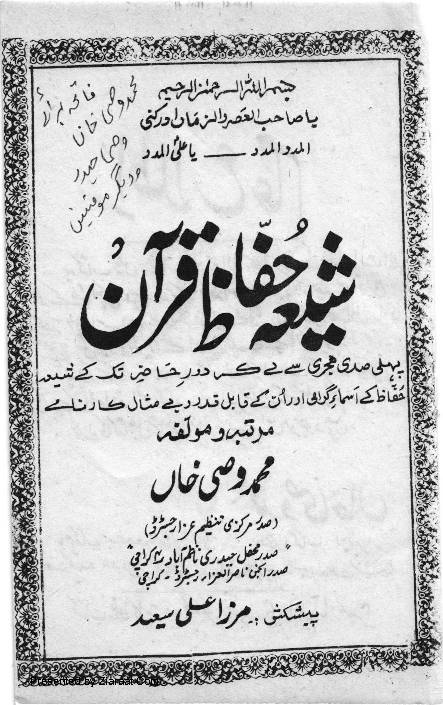 بسم اللہ الرحمٰن الرحیم
یا صاحب العصر والزماں ادرکنی
المدد المدد —— یا علیؑ المدد
فاتحہ برائے
محمد وصی خاں
وصی حیدر
و دیگر مومنین
شیعہ حُفّاظِ قرآن
پہلی صدی ہجری سے لے کر دورِ حاضر تک کے شیعہ
حُفّاظ کے اسماء گرامی اور اُن کے قابل قدر و بے مثال کارنامے
مرتبہ و مولفہ
محمد وصی خاں
(صدر مرکزی تنظیم عزا رجسٹرڈ)
"صدر محفل حیدری ناظم آباد ۴ کراچی"
صدر انجمن ناصر العزاء رجسٹرڈ - کراچی
پیشکش :۔ مرزا علی سعید
Presented by Ziaraat.Com